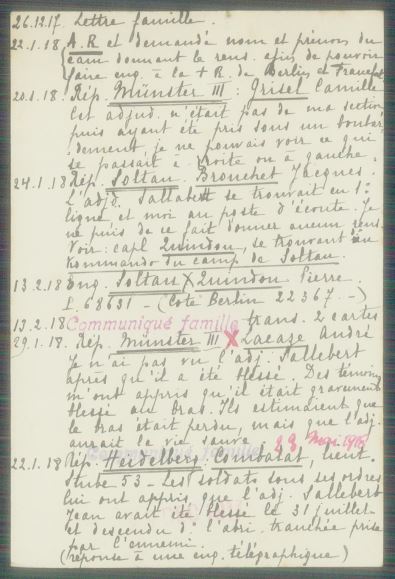 26.12.17. Lettre famille.
22.1.18. A.R et demandé nom et prénom du
cam donnant le rens. afin de pouvoir
faire enq. à la + R. de Berlin et Francfort
20.1.18. Rép. Münster III : Grisel Camille
Cet adjud. n'était pas de ma section
puis ayant été pris sous un bombar
dement je ne pouvais voir ce qui
se passait à droite ou à gauche.
24.1.18 Rép. Soltau. Bronchet Jacques.
L'adj. Sallabert se trouvait en 1°
ligne et moi au poste d'écoute. Je
ne puis de ce fait donner aucun rens.
Voir: capl Quindou, se trouvant au
Kommando du camp de Soltau.
13.2.18 Enq. Soltau X Quindou Pierre.
I. 68631 - (Cote Berlin 22367 -)
13.2.18 Communiqué famille trans. 2 cartes
29.1.18. Rép. Münster III X Lacaze André
Je n'ai pas vu l'adj. Sallebert
après qu'il a été blessé. Des témoins
m'ont appris qu'il était gravement
blessé au bras. Ils estimaient que
le bras était perdu, mais que l'adj.
aurait la vie sauve. 28 Mai 1918
Communiqué famille
22.1.18 Rép. Heidelberg, lieut.
Stube 53 - Les soldats sous ses ordres
lui ont appris que l'adj. Sallebert
Jean avait été blessé le 31 juillet -
et descendu ds l'abri. tranchée prise
par l'ennemi.
(réponse à une enq. télégraphique)